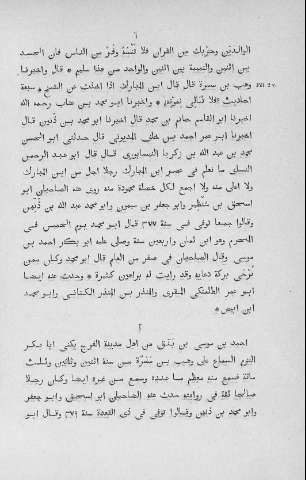 ٦
الوالدين وحزبك من القران فلا فتنة وفر من الناس فان الحسد
بين اثنين والنميمة بين اثنين والواحد من هذا سليم * قال واخبرنا
وهب بن مسرة قال قال ابن المبارك اذا اخذت عن الشيخ سبعة
احاديث فلا تبالى بموته * واخبرنا ابو محمد بن عتاب رحمه الله
اخبرنا ابو القاسم حاتم بن محمد قال قال ابو محمد بن ذنين قال
اخبرنا ابو عمر احمد بن خلف المديونى قال حدثنى ابو الحسن
محمد بن عبد الله بن زكريا النيسابورى قال قال ابو عبد الرحمن
النسائى ما نعلم فى عصر ابن المبارك رجلا اجل من ابن المبارك
ولا اعلى منه ولا اجمع لكل خصلة محمودة منه روى عنه الصاحبان ابو
اسحق بن شنظير وابو جعفر بن ميمون وابو محمد عبد الله بن ذنين
وقالوا جميعا توفى فى سنة ٣٧٧ قال ابو محمد يوم الخميس فى
المحرم وهو ابن ثمان واربعين سنة وصلى عليه ابو بكر احمد بن
موسى وقال الصاحبان فى صفر من العام قال ابو محمد وكان ممن
ترجى بركة دعائه وقد رايت له براهين كثيرة * وحدث عنه ايضا
ابو عمر الطلمنكى المقرى والمنذر بن المنذر الكنانى وابو محمد
ابن ابيض *
٢
احمد بن موسى بن ينق من اهل مدينة الفرج يكنى ابا بكر
التزم السماع على وهب بن مسرة من سنة اثنين وثلاثين وثلث
مائة فسمع منه معظم ما عنده وسمع من غيره ايضا وكان رجلا
صالحا ثقة فى روايته حدث عنه الصاحبان ابو اسحق وابو جعفر
وابو محمد بن ذنين وقالوا توفى فى ذى القعدة سنة ٣٧٦ وقال ابو